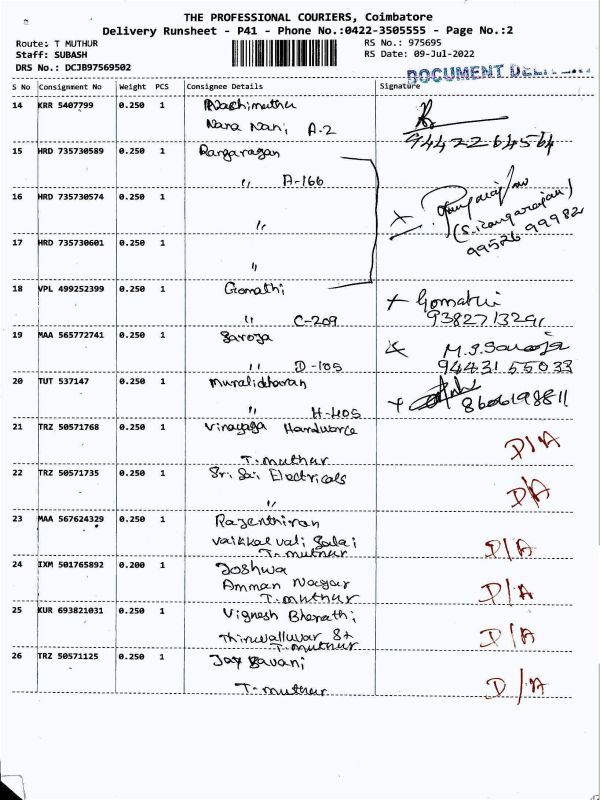 THE PROFESSIONAL COURIERS, Coimbatore
Delivery Runsheet - P41 - Phone No.:0422-3505555 - Page No.:2
Route: T MUTHUR
RS No.: 975695
Staff: SUBASH
RS Date: 09-Jul-2022
DRS No.: DCJB97569502
DOCUMENT
S No Consignment No Weight PCS Consignee Details Signature
14 KRR 5407799 0.250 1
Nana Nani A-2
94422 64564
15 HRD 735730589 0.250 1 Rangarajan
" A-166
16 HRD 735730574 0.250 1
"
(S. Rangarajan)
99526 99982
17 HRD 735730601 0.250 1
"
18 VPL 499252399 0.250 1 Gomathi
+ Gomathi
" C-209
9382713291
19 MAA 565772741 0.250 1 Saroja
M.S. Saroja
" D-105
94431 55033
20 TUT 537147 0.250 1 Muralidharan
" H-405
8606198811
21 TRZ 50571768 0.250 1 Vinayaga Hardware
T. muthur
D/A
22 TRZ 50571735 0.250 1 Sri Sai Electricals
"
D/A
23 MAA 567624329 0.250 1 Rajenthiran
Vaikkal vali Salai
T. muthur
D/A
24 IXM 501765892 0.200 1 Joshwa
Amman Nagar
T. muthur
D/A
25 KUR 693821031 0.250 1 Vignesh Bharathi
Thiruvalluvar St
T. muthur
D/A
26 TRZ 50571125 0.250 1 Jay Bavani
T. muthur
D/A